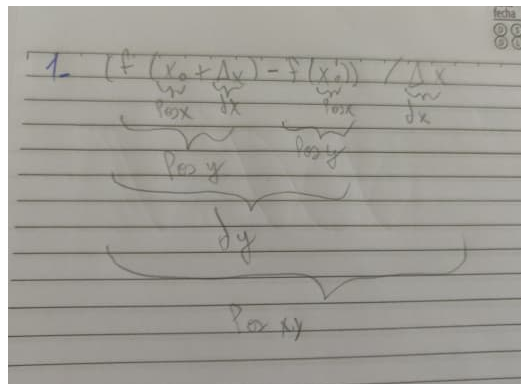 fecha
1. (f (x₀ + Δx) - f (x₀)) / Δx
Pos x dx Pos x dx
Pos y Pos y
dy
Pos xy